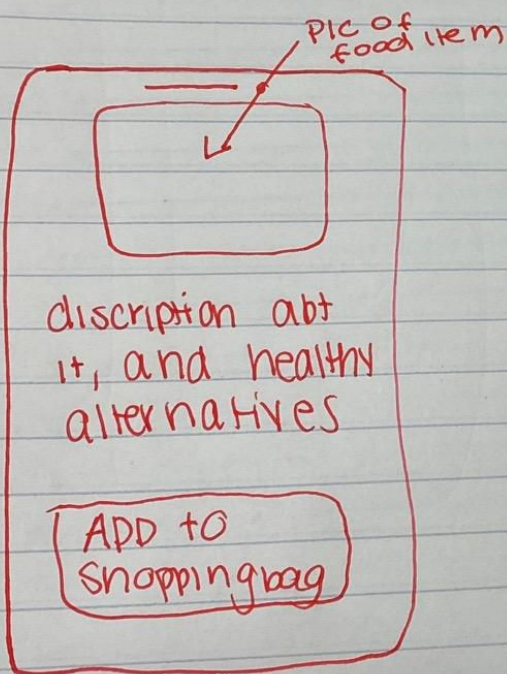 PIC OF
food item
discription abt
it, and healthy
alternatives
ADD to
shoppingbag